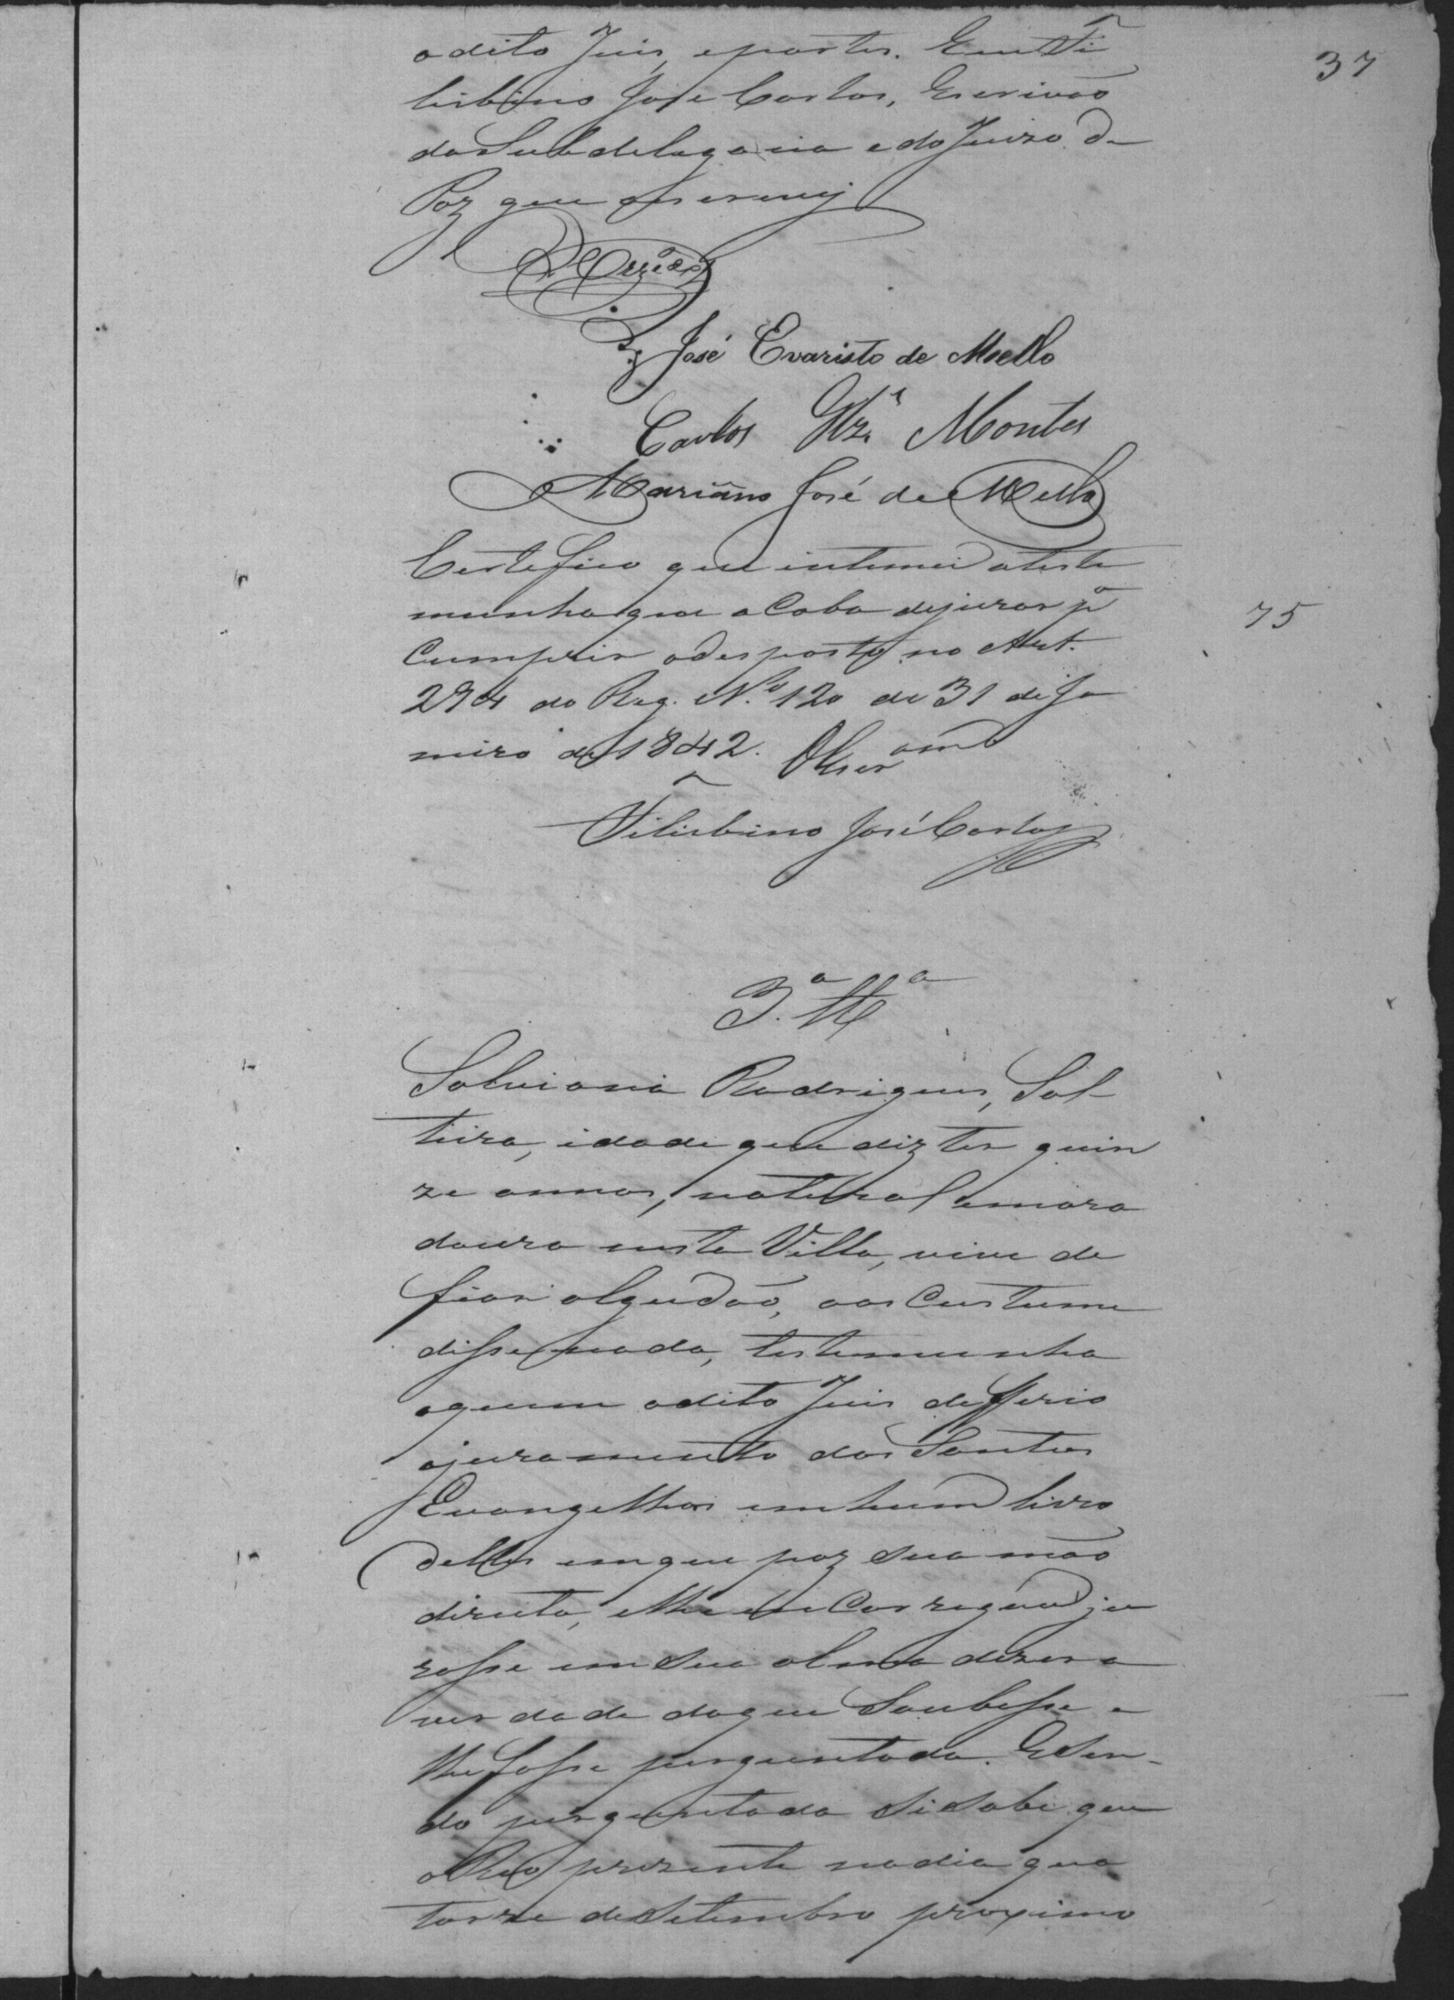 37
o dito Juis, e partes. Eu Fi
lisbino José Carlos, Escrivaõ
da Subdelegacia e do Juizo de
Paz que escrevij
José Evaristo de Mello
Carlos Glz. Montes
Marianno José de Mello
Certefico que intimei a teste
munha que acaba dejurar pª
Cumprir o desposto no Art.
294 do Reg. N.º 120 de 31 de Ja
neiro de 1842. O Escr am
75
Filisbino José Carlos
3.ª Ttª
Salviana Rodrigues, Sol-
teira, idade que diz ter quin
ze annos, natural e mora
doura nesta Villa, vive de
fiar algudaõ, aos Custume
disse nada, testemunha
aquem o dito Juis defferio
ojuramento dos Santos
Evangelhos em hum livro
delles emque poz sua maõ
direita, e lhe encarregou ju
rasse em sua alma dizer a
verdade doque Soubesse e
lhe fosse perguntada. E Sen-
do perguntada si Sabe que
o Reo prezente nodia qua
torze de Setembro proximo